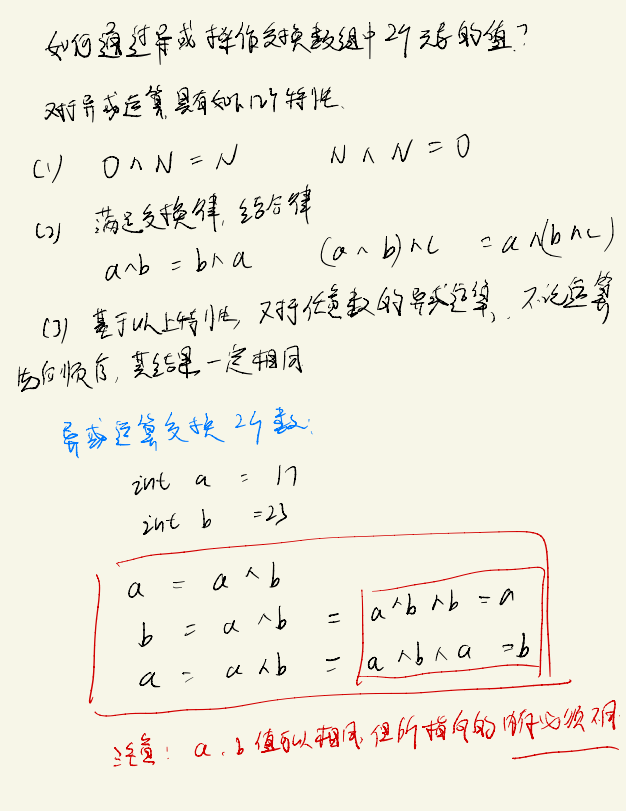 如何通过异或操作交换数组中2个元素的值?
对于异或运算,具有如下几个特性.
(1) 0∧N = N N∧N = 0
(2) 满足交换律,结合律
a∧b = b∧a (a∧b)∧c = a∧(b∧c)
(3) 基于以上特性,对于任意数的异或运算,不论运算
的顺序,其结果一定相同
异或运算交换2个数:
int a = 17
int b =23
a = a∧b
b = a∧b = a∧b∧b = a
a = a∧b = a∧b∧a =b
注意: a、b值可以相同,但所指向的内存必须不同